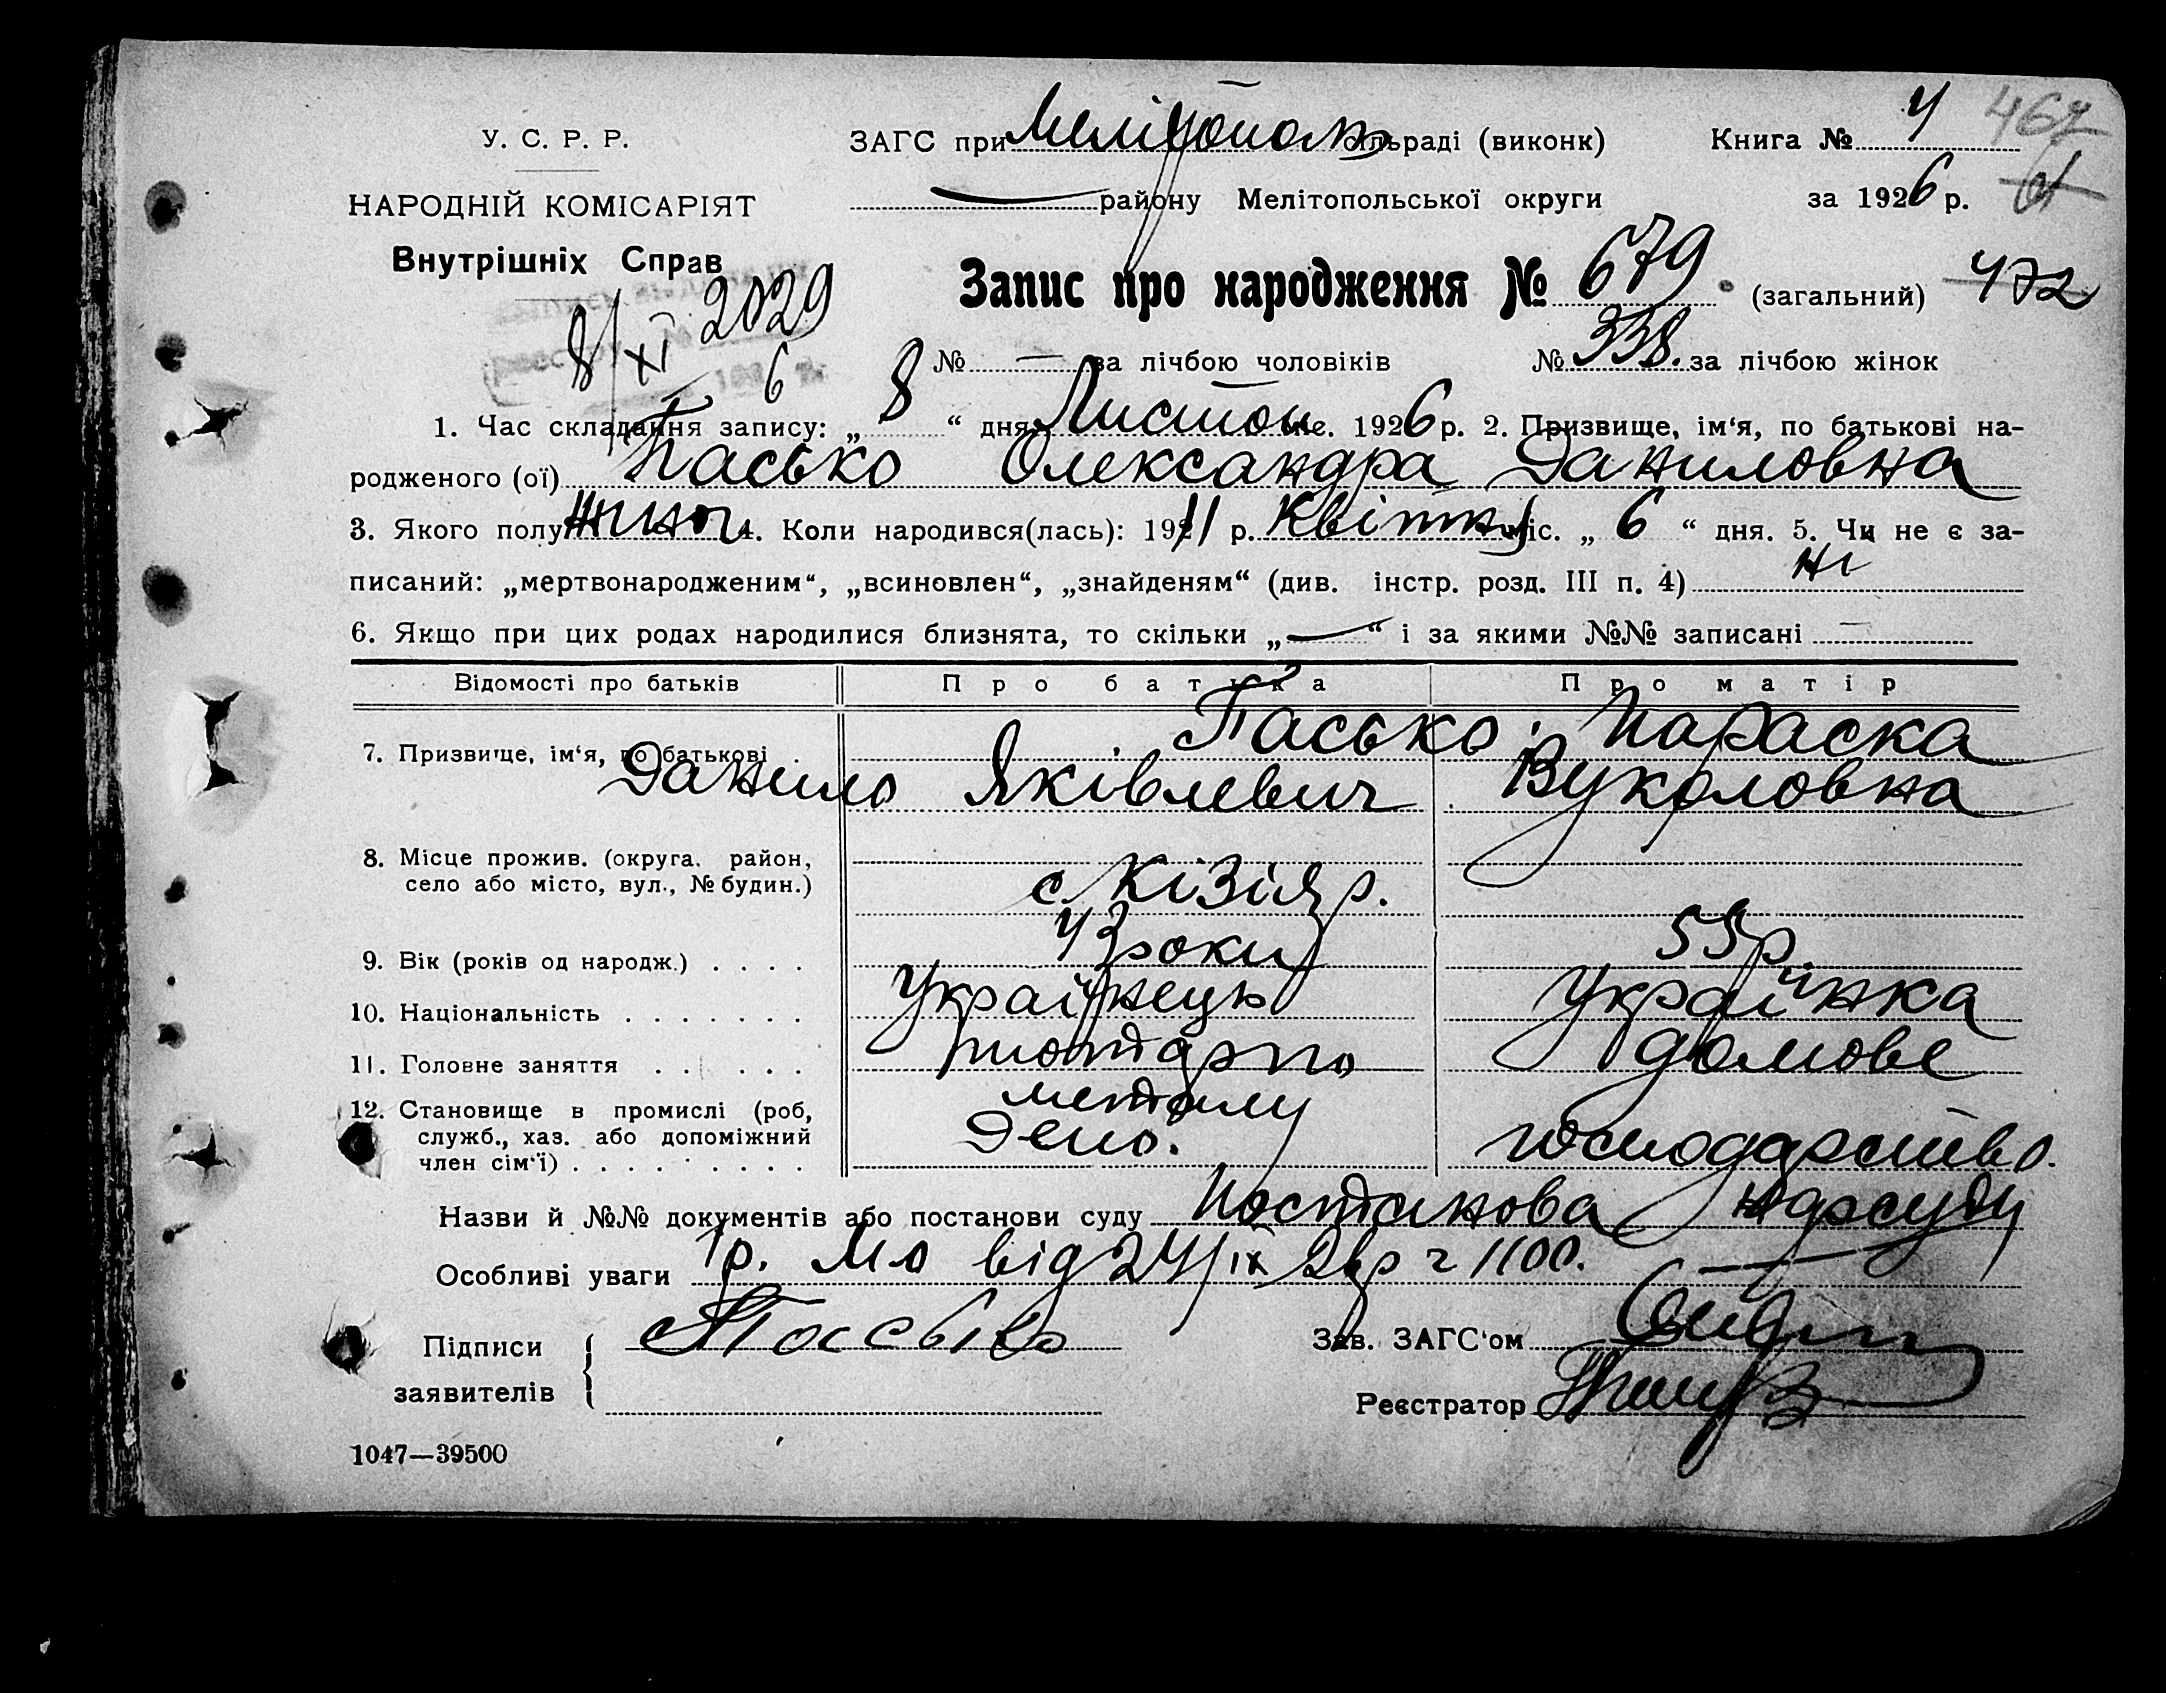 У. С. Р. Р.
ЗАГС при Мелітополь сільраді (виконк)
Книга № 4
467
НАРОДНІЙ КОМІСАРІЯТ
— району Мелітопольської округи
за 1926 р.
Внутрішніх Справ
Запис про народження № 679 (загальний) 472
8/XI 2029
6
№ — за лічбою чоловіків № 338. за лічбою жінок
1. Час складання запису: „ 8 “ дня Листоп міс. 1926 р. 2. Призвище, ім‘я, по батькові на-
родженого (ої) Пасько Олександра Даниловна
3. Якого полу жіноч 4. Коли народився(лась): 1911 р. Квітня міс. „ 6 “ дня. 5. Чи не є за-
писаний: „мертвонародженим“, „всиновлен“, „знайденям“ (див. інстр. розд. III п. 4) ні
6. Якщо при цих родах народилися близнята, то скільки „—“ і за якими №№ записані —
Відомості про батьків Про батька Про матір
7. Призвище, ім‘я, по батькові . Пасько . Параска
Данило Яківлевич Вуколовна
8. Місце прожив. (округа, район,
село або місто, вул., № будин.) с. Кізіяр.
9. Вік (років од народж.) . . . . 43 роки 55 р.
10. Національність . . . . . . . Українець Українка
11. Головне заняття . . . . . . домове
12. Становище в промислі (роб,
служб., хаз. або допоміжний
член сім‘ї) . . . . . . . . . Депо. господарство.
Назви й №№ документів або постанови суду Постанова нарсуду
Особливі уваги 1 р. М/о від 24/IX 26 р ч 1100. —
Підписи
заявителів { Пасько
Зав. ЗАГС‘ом
Реєстратор
1047—39500